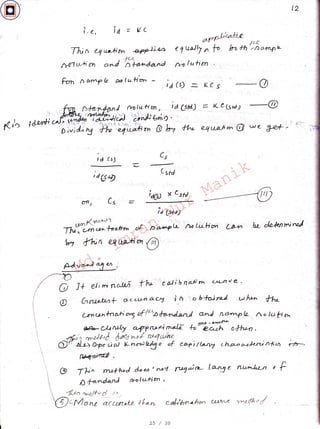 12
i.e, id = KC
applicable
This equation applies equally to both sample
solution and standard solution.
For sample solution - id (s) = KCs — (I)
For standard solution, id (std) = KC(std) — (II)
K is identical under identical condition.
Dividing the equation (I) by the equation (II) we get -
id (s) / id(std) = Cs / Cstd
or, Cs = id(s) x Cstd / id (std) — (III)
unknown
The concentration of sample solution can be determined
by this equation (III)
Advantages
(1) It eliminates the calibration curve.
(2) Greatest accuracy is obtained when the
concentrations of the standard and sample solution
are closely approximate to each other.
(3) This method does not require
special knowledge of capillary characteristics
required.
(4) This method does not require large number of
standard solution.
This method is
(5) More accurate than calibration curve method
Md. Imran Nur Manik
25 / 30